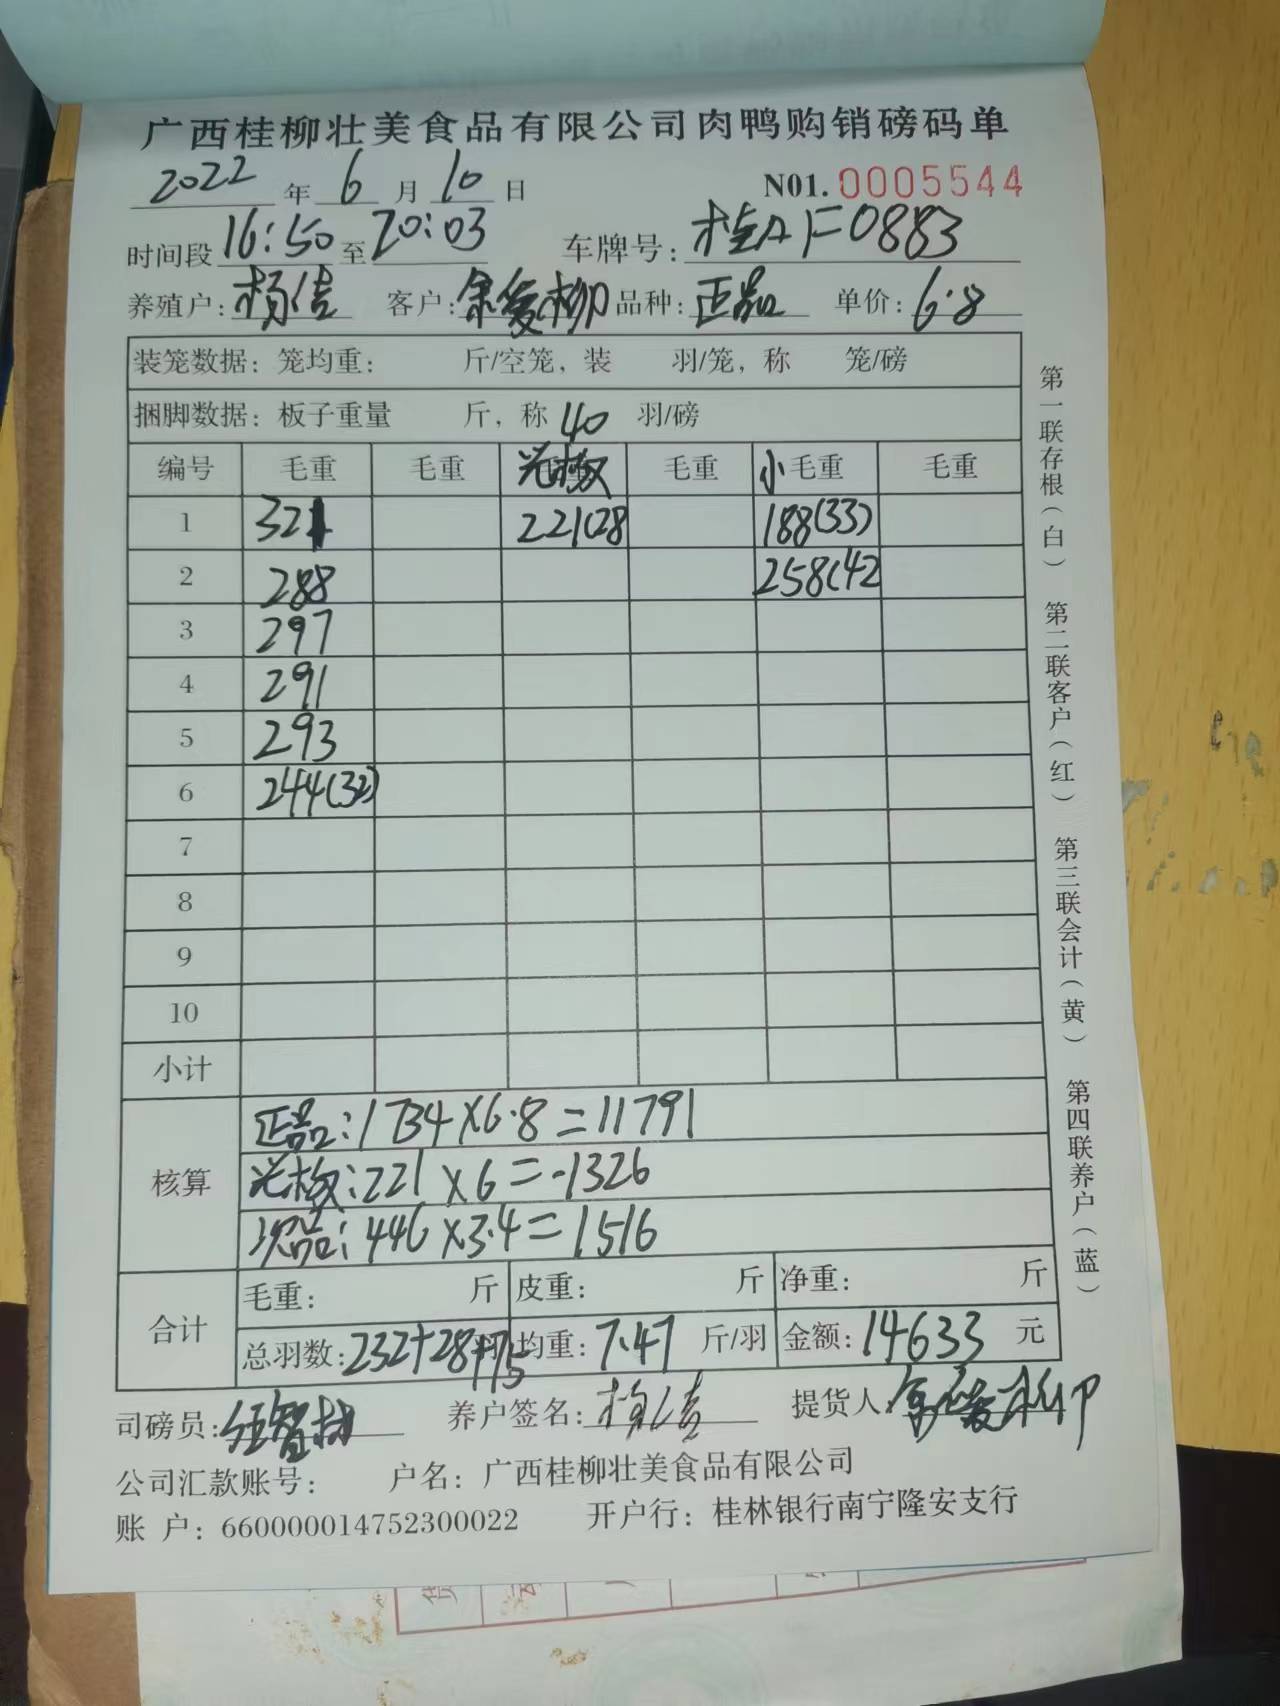 广西桂柳壮美食品有限公司肉鸭购销磅码单
2022年6月10日 N01.0005544
时间段16:50至20:03 车牌号:桂AF0883
养殖户:杨佶 客户:余爱柳 品种:正品 单价:6.8
装笼数据:笼均重: 斤/空笼,装 羽/笼,称 笼/磅
捆脚数据:板子重量 斤,称40羽/磅
编号 毛重 毛重 光板 毛重 小毛重 毛重
1 321 221(28 188(33)
2 288 258(42
3 297
4 291
5 293
6 244(32)
7
8
9
10
小计
核算 正品:1734×6.8=11791
光板:221×6=1326
次品:446×3.4=1516
合计 毛重: 斤 皮重: 斤 净重: 斤
总羽数:232+28+75 均重:7.47斤/羽 金额:14633元
司磅员: 养户签名: 提货人:余爱柳
公司汇款账号: 户名:广西桂柳壮美食品有限公司
账 户:660000014752300022 开户行:桂林银行南宁隆安支行
第一联存根(白) 第二联客户(红) 第三联会计(黄) 第四联养户(蓝)